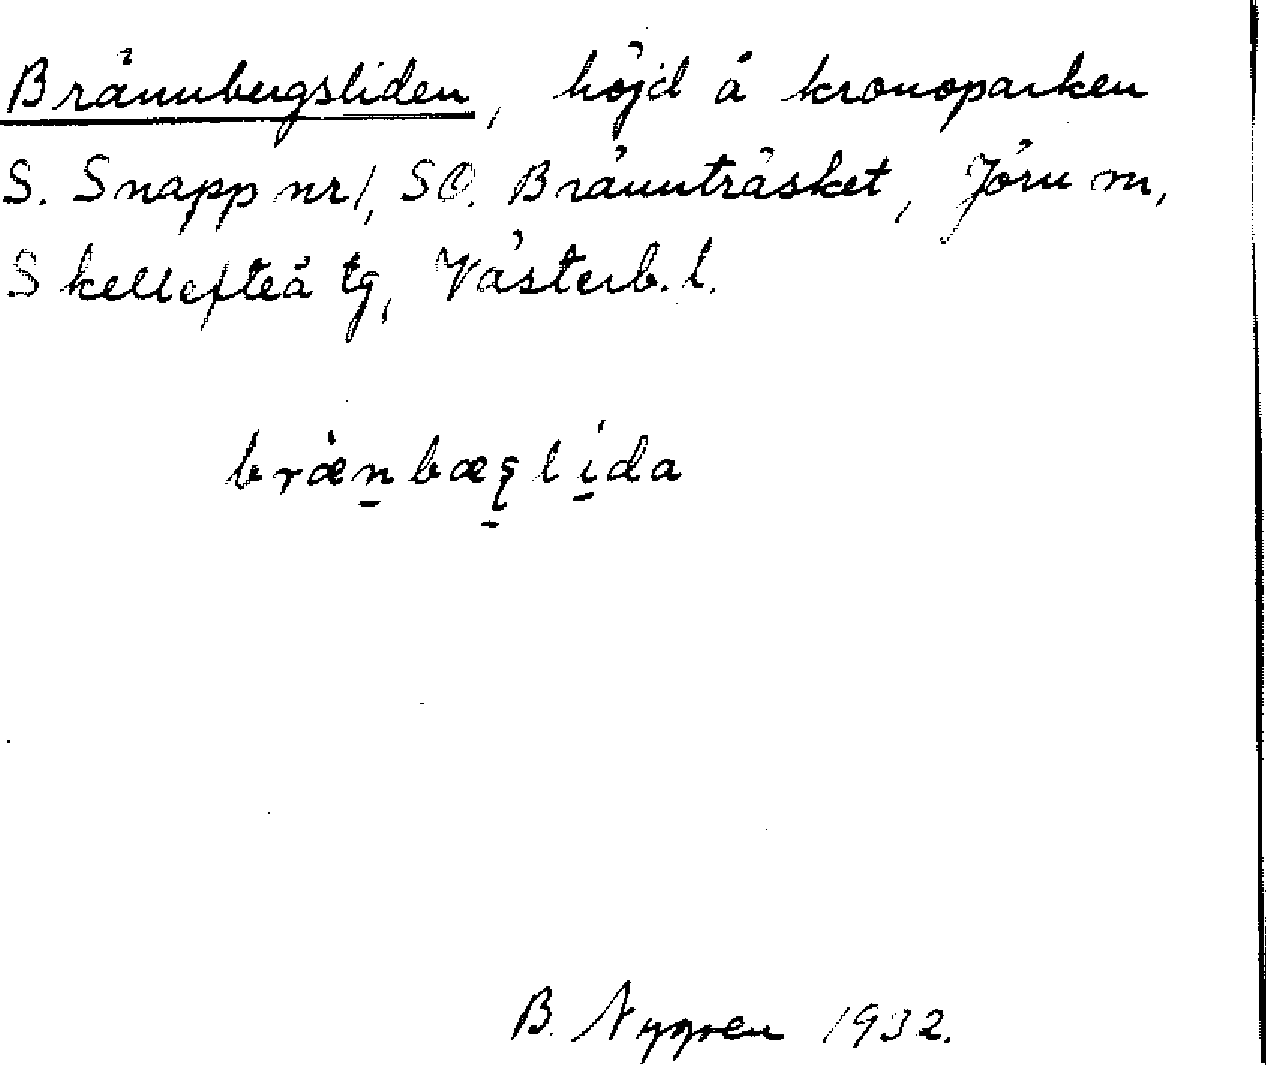 Brännbergsliden, höjd å kronoparken
S. Snapp nr 1, SO. Brännträsket, Jörn m,
Skellefteå tg, Västerb. l.
B. Nygren 1932.